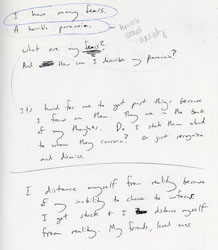 I have many fears.
A horrible paranoia.
What are my fears?
And How can I describe my paranoia?
It's hard for me to get past things because
I focus on them. They are in the back
of my thoughts. Do I state them aloud
to whom they concern? Or just recognize
and dismiss.
I distance myself from reality because
of my inability to choose to unfocus.
I get stuck & I distance myself
from reality. My friends, loved ones.